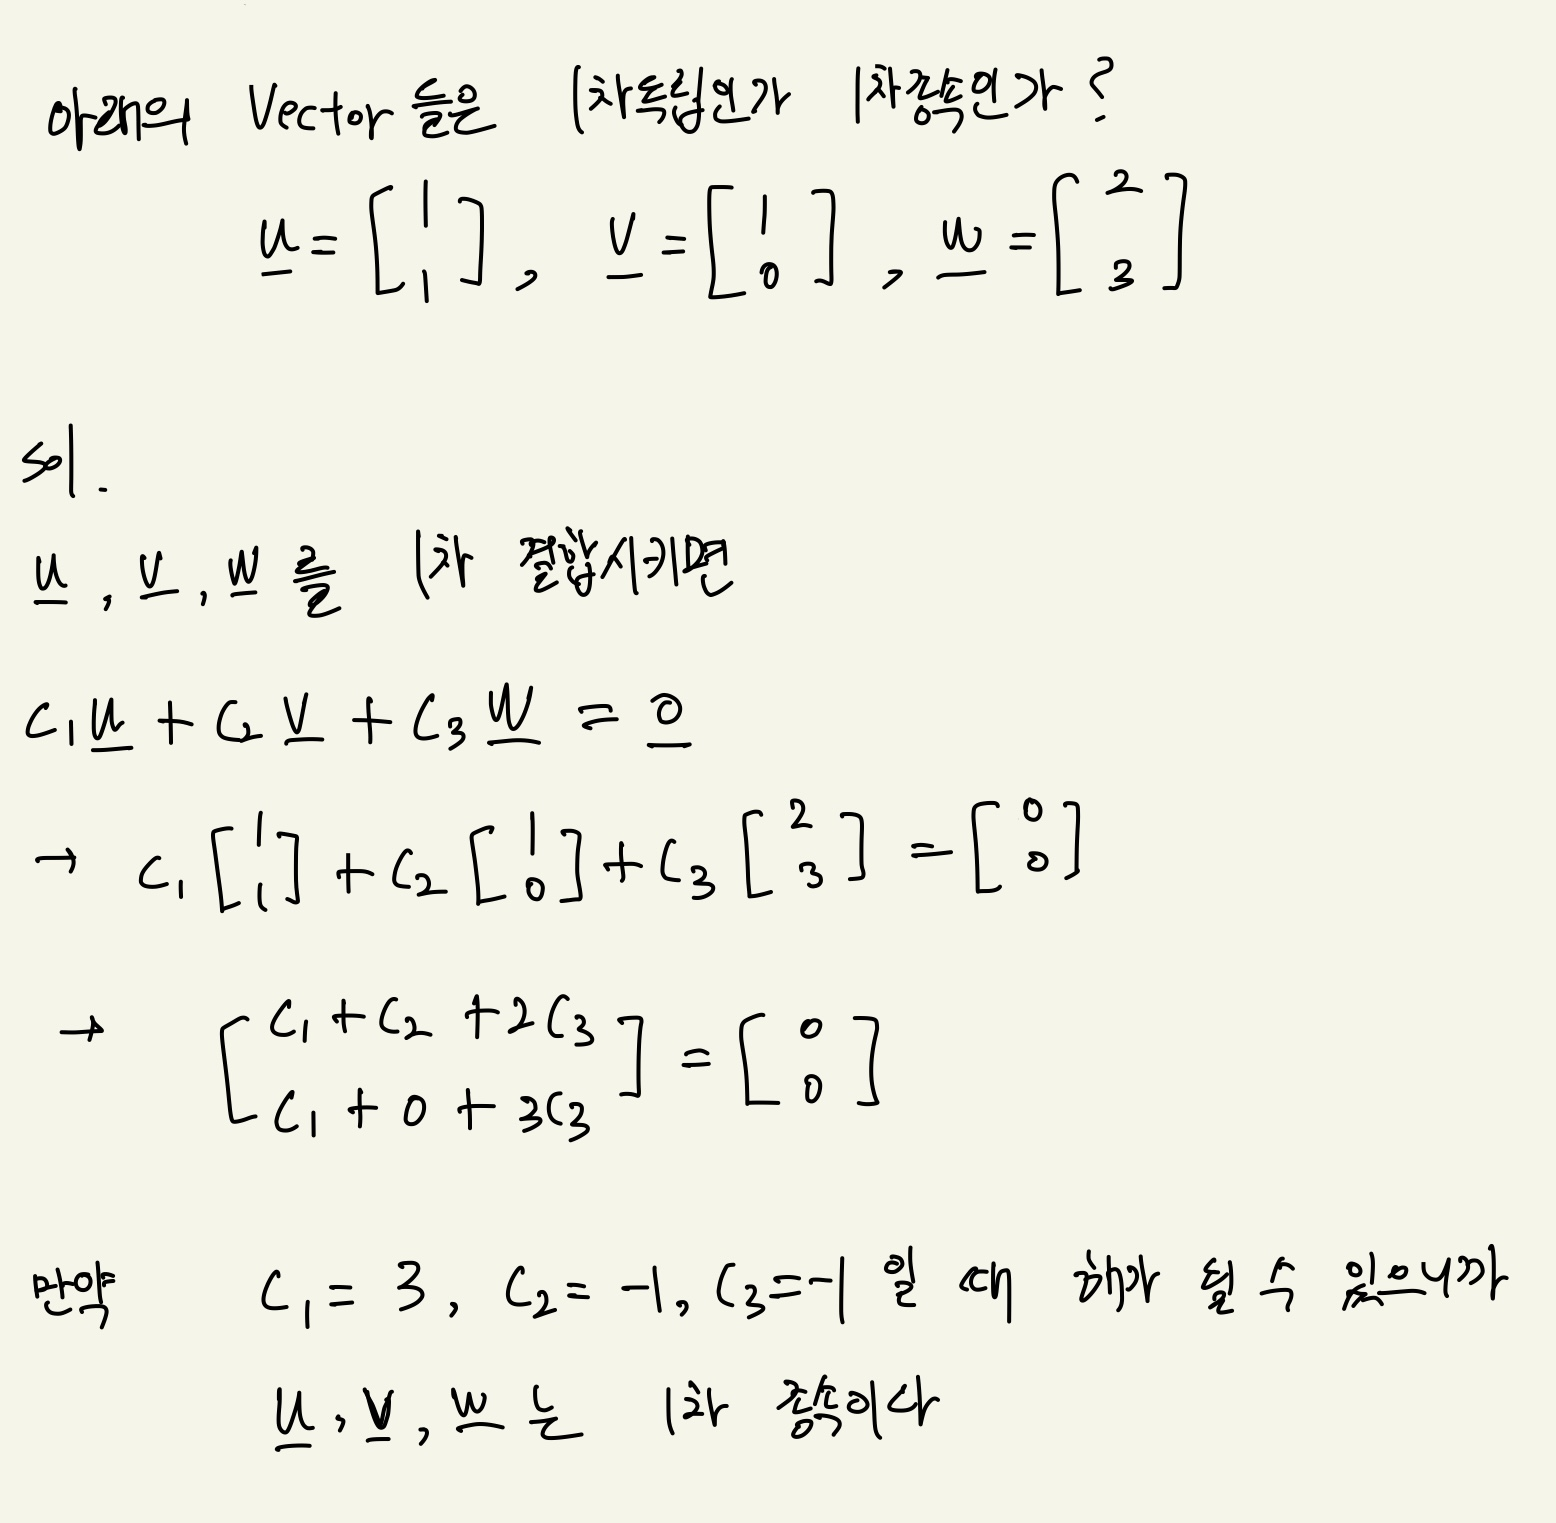 아래의 Vector 들은 1차독립인가 1차종속인가?
u = [1 1], v = [1 0], w = [2 3]
sol.
u, v, w 를 1차 결합시키면
c₁u + c₂v + c₃w = 0
→ c₁[1 1] + c₂[1 0] + c₃[2 3] = [0 0]
→ [c₁ + c₂ + 2c₃
c₁ + 0 + 3c₃] = [0 0]
만약 c₁ = 3, c₂ = -1, c₃ = -1 일 때 해가 될 수 있으니까
u, v, w 는 1차 종속이다